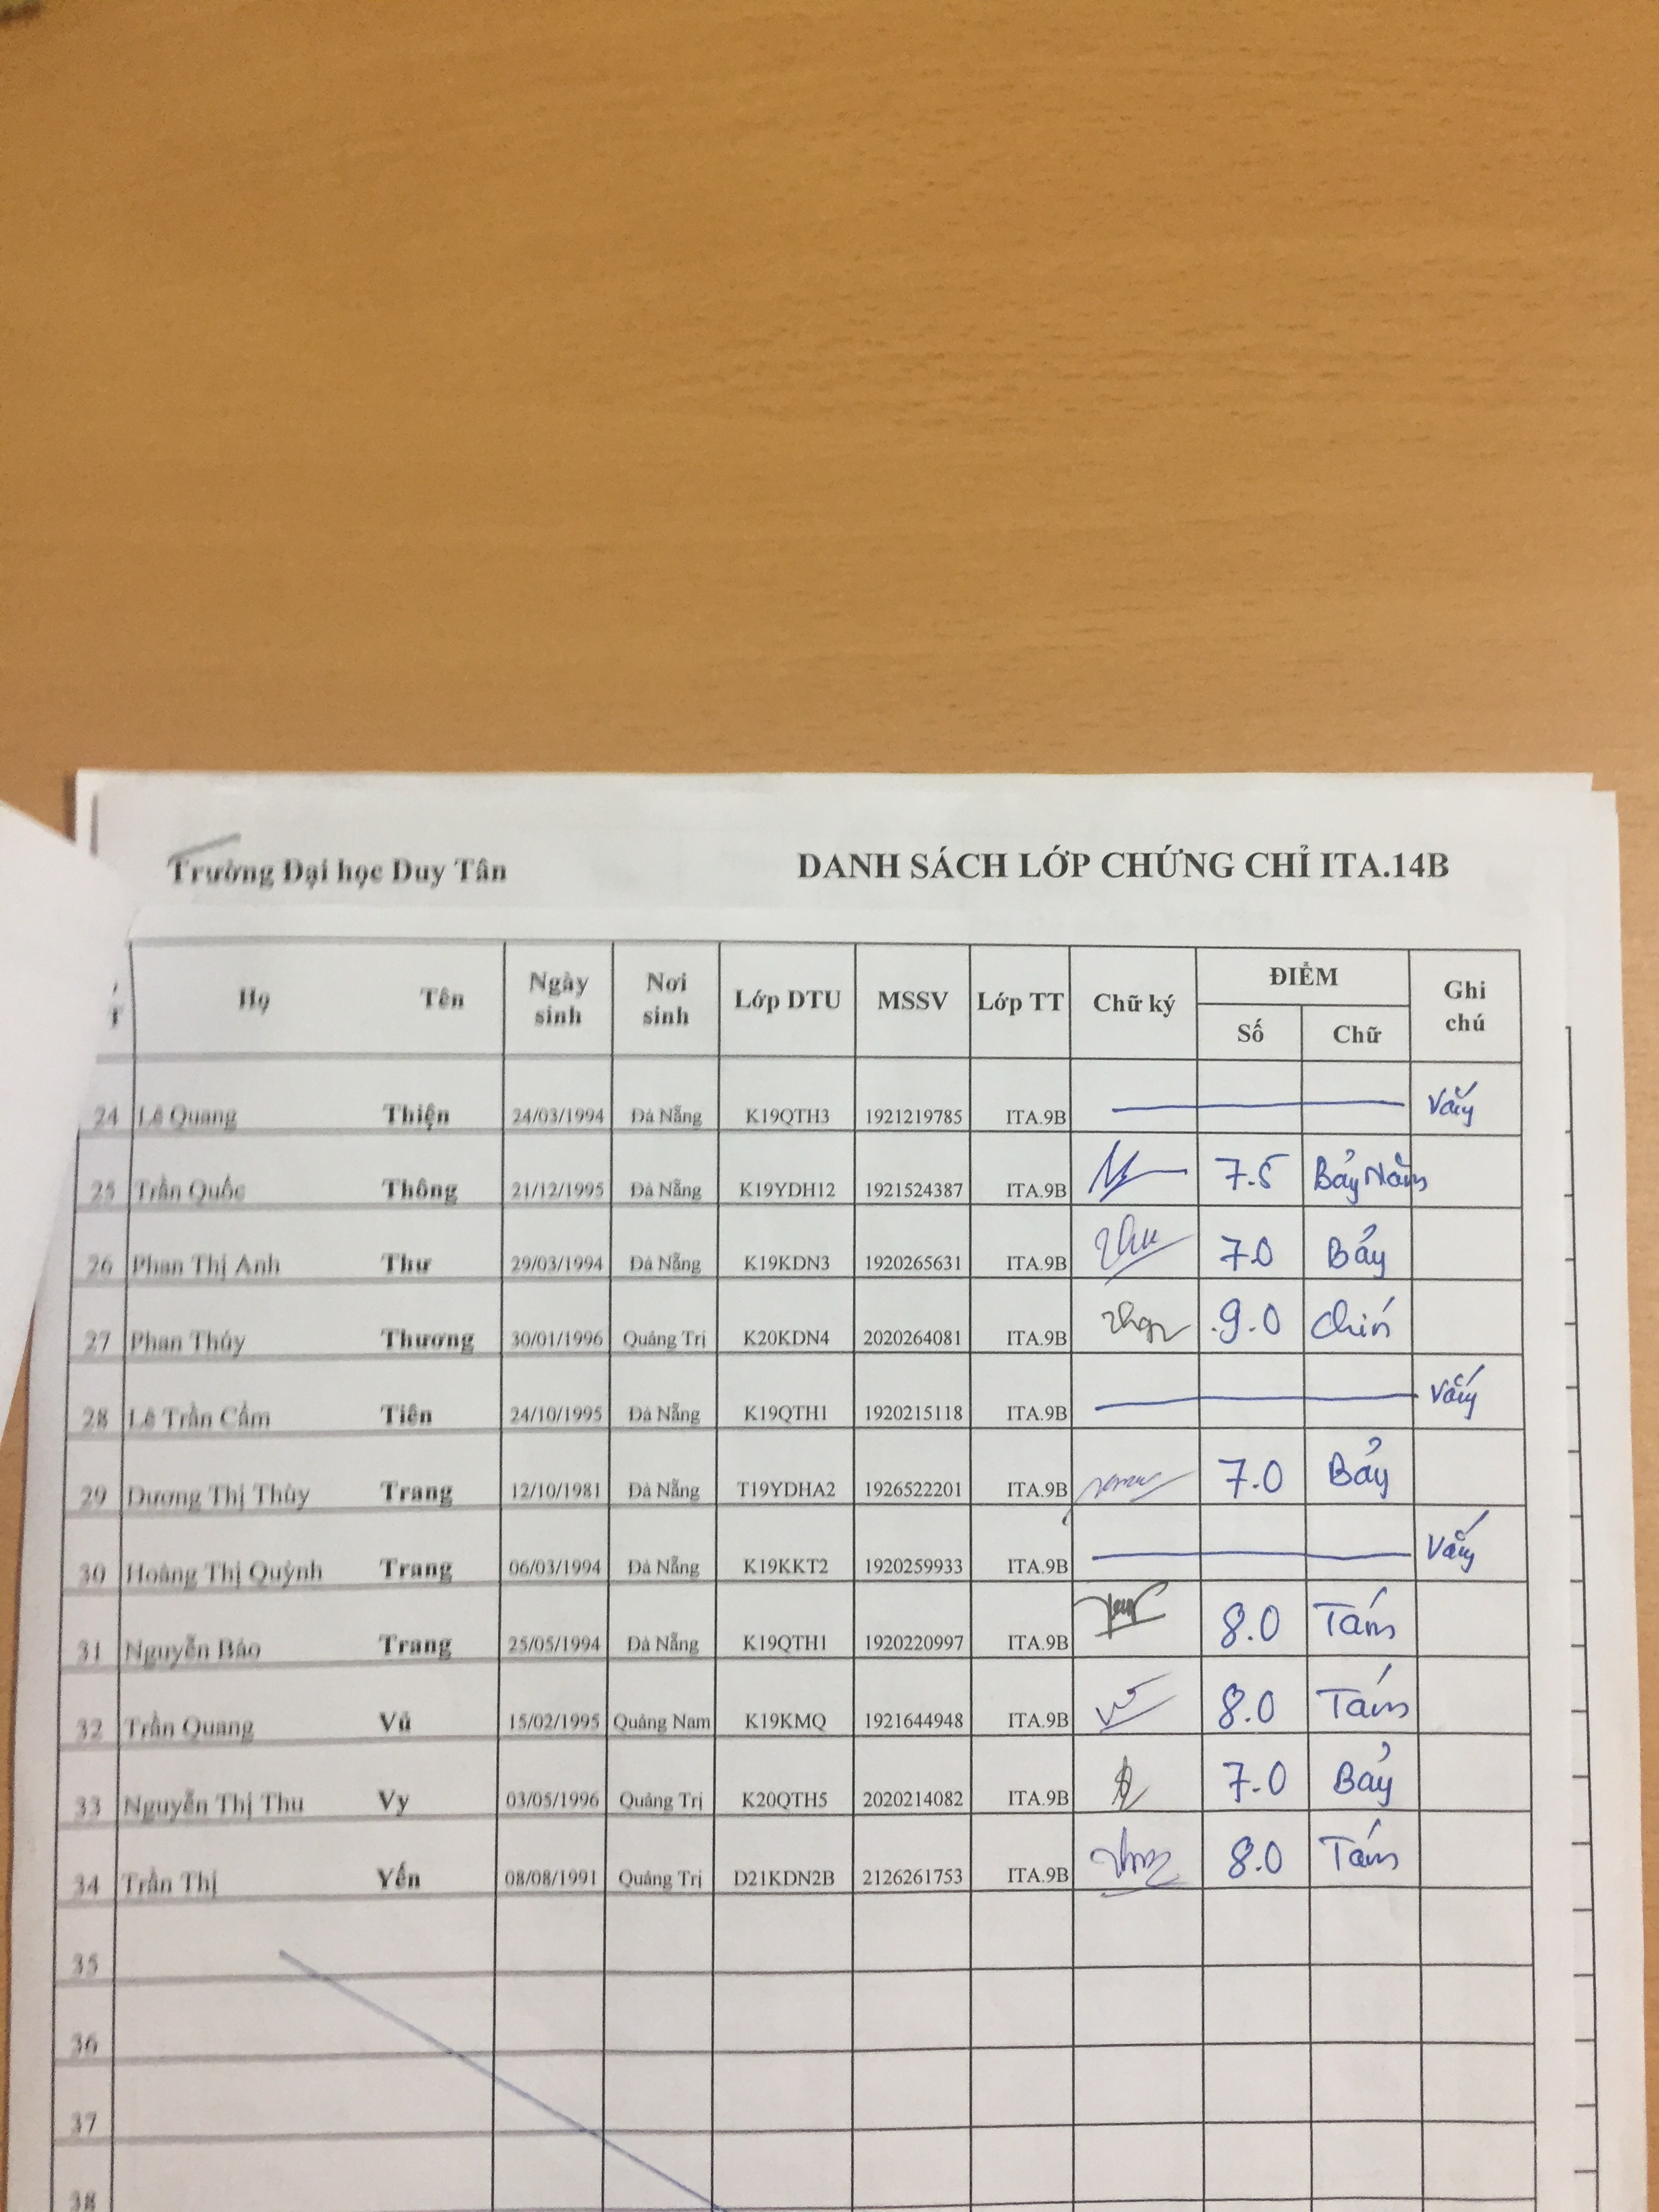 Trường Đại học Duy Tân DANH SÁCH LỚP CHỨNG CHỈ ITA.14B
T Họ Tên Ngày sinh Nơi sinh Lớp DTU MSSV Lớp TT Chữ ký ĐIỂM Số Chữ Ghi chú
24 Lê Quang Thiện 24/03/1994 Đà Nẵng K19QTH3 1921219785 ITA.9B Vắng
25 Trần Quốc Thông 21/12/1995 Đà Nẵng K19YDH12 1921524387 ITA.9B 7.5 Bảy Năm
26 Phan Thị Anh Thư 29/03/1994 Đà Nẵng K19KDN3 1920265631 ITA.9B 7.0 Bảy
27 Phan Thúy Thương 30/01/1996 Quảng Trị K20KDN4 2020264081 ITA.9B 9.0 Chín
28 Lê Trần Cẩm Tiên 24/10/1995 Đà Nẵng K19QTH1 1920215118 ITA.9B Vắng
29 Dương Thị Thùy Trang 12/10/1981 Đà Nẵng T19YDHA2 1926522201 ITA.9B 7.0 Bảy
30 Hoàng Thị Quỳnh Trang 06/03/1994 Đà Nẵng K19KKT2 1920259933 ITA.9B Vắng
31 Nguyễn Bảo Trang 25/05/1994 Đà Nẵng K19QTH1 1920220997 ITA.9B 8.0 Tám
32 Trần Quang Vũ 15/02/1995 Quảng Nam K19KMQ 1921644948 ITA.9B 8.0 Tám
33 Nguyễn Thị Thu Vy 03/05/1996 Quảng Trị K20QTH5 2020214082 ITA.9B 7.0 Bảy
34 Trần Thị Yến 08/08/1991 Quảng Trị D21KDN2B 2126261753 ITA.9B 8.0 Tám
35
36
37
38